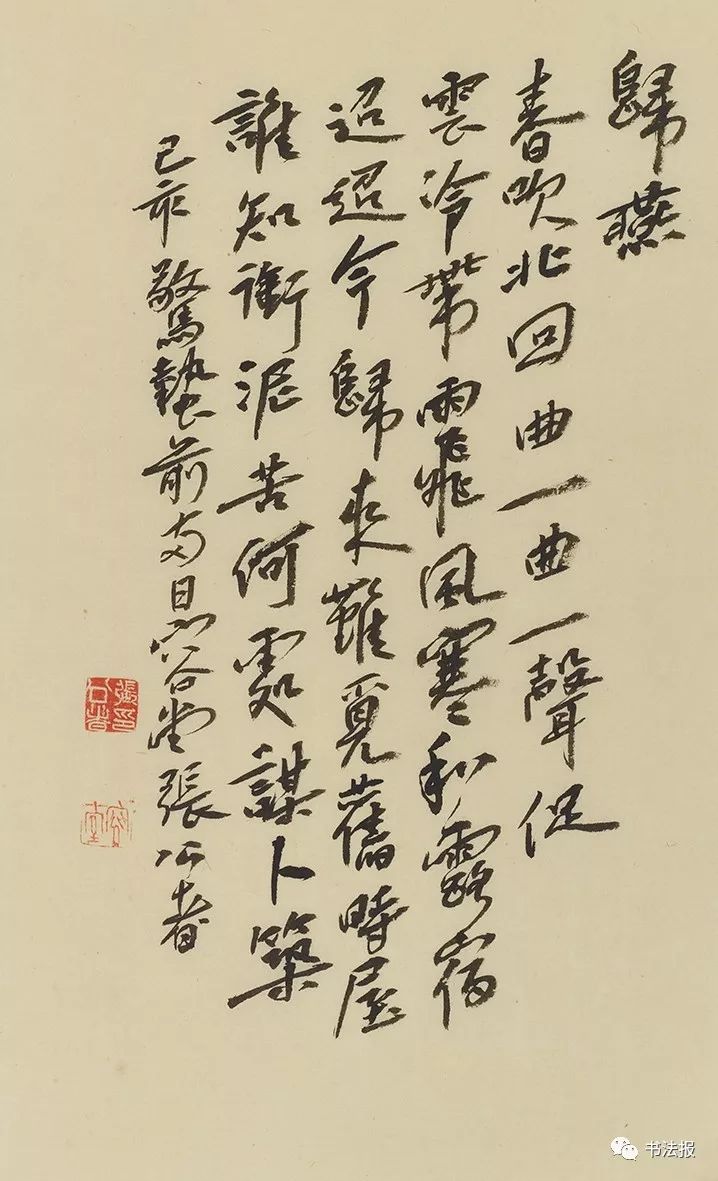 歸燕
春吹北回曲一曲一聲促
雲冷帶雨飛風寒和露宿
迢迢今歸來難覓舊時屋
誰知銜泥苦何處謀卜築
己亥驚蟄前两日容堂張公者
張印公者
容堂
书法报